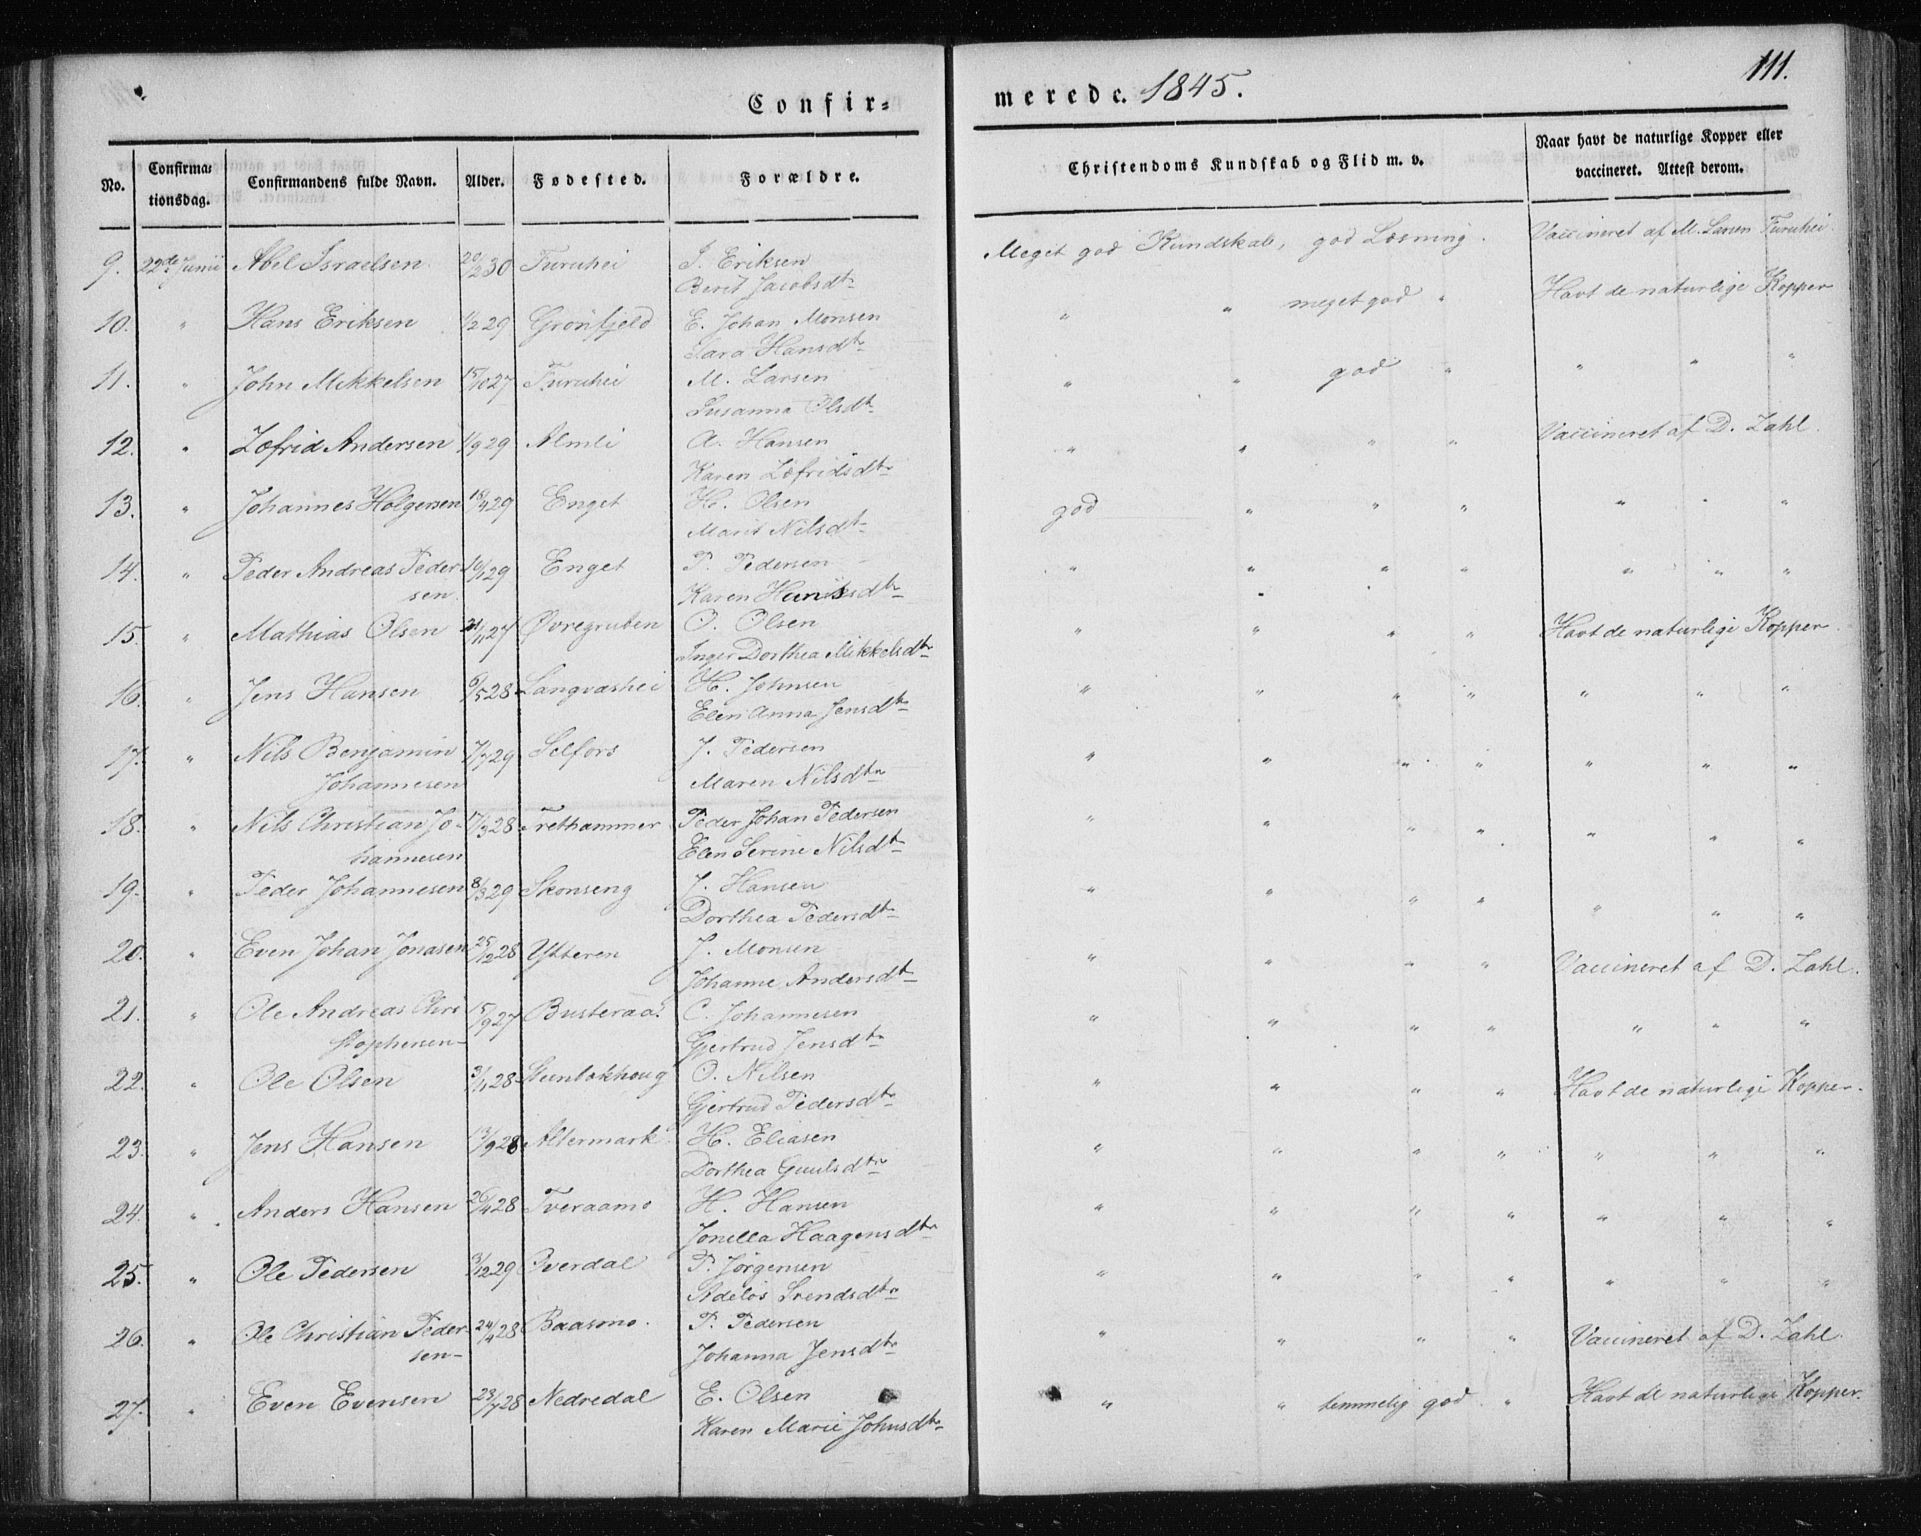 Confir=
merede. 1845.
111.
No.
Confirma:
tionsdag.
Confirmandens fulde Navn.
Alder.
Fødested.
Forældre.
Christendoms Kundskab og Flid m. v.
Naar havt de naturlige Kopper eller
vaccineret. Attest derom.
9. 22de Junii Abel Israelsen 20/2 30 Furuhei I. Eriksen Meget god Kundskab, god Læsning. Vaccineret af M. Larsen Furuhei.
Berit Jacobsdtr
10. " Hans Eriksen 1/2 29 Grønfjeld E. Johan Monsen " " meget god " Havt de naturlige Kopper
Sara Hansdtr
11. " John Mikkelsen 15/10 27 Furuhei M. Larsen " " god " " " "
Susanna Olsdtr
12. " Zefrid Andersen 1/9 29 Almli A. Hansen " " " " Vaccineret af D. Zahl.
Karen Zefridsdtr
13. " Johannes Holgersen 18/4 29 Enget H. Olsen god " " " " " "
Marit Nilsdtr
14. " Peder Andreas Peder 10/1 29 Enget P. Pedersen " " " " " " "
sen. Karen Henriksdtr
15. " Mathias Olsen 21/11 27 Øvregruben O. Olsen " " " " Havt de naturlige Kopper.
Inger Dorthea Mikkelsdtr
16. " Jens Hansen 6/5 28 Langvashei H. Johnsen " " " " " " "
Elen Anna Jensdtr
17. " Nils Benjamin 7/7 29 Selfors J. Pedersen " " " " " " "
Johannesen Maren Nilsdtr
18. " Nils Christian Jo- 17/3 28 Trethammer Peder Johan Pedersen " " " " " " "
hannesen Elen Serine Nilsdtr
19. " Peder Johannesen 8/3 29 Skonseng J. Hansen " " " " " " "
Dorthea Pedersdtr
20. " Even Johan Jonasen 25/12 28 Ytteren J. Monsen " " " " Vaccineret af D. Zahl.
Johanne Andersdtr
21. " Ole Andreas Chri 15/9 27 Busteraa. C. Johannesen " " " " " " "
stophersen- Gjertrud Jensdtr
22. " Ole Olsen 3/11 28 Stenbokhoug O. Nilsen " " " " Havt de naturlige Kopper.
Gjertrud Pedersdtr
23. " Jens Hansen 13/9 28 Altermark H. Eliasen " " " " " " "
Dorthea Guulsdtr
24. " Anders Hansen 26/4 28 Tveraamo H. Hansen " " " " " " "
Jonella Haagensdtr
25. " Ole Pedersen 3/12 29 Overdal P. Jørgensen " " " " " " "
Adelos Svendsdtr
26. " Ole Christian Peder 24/4 28 Baasmo. P. Pedersen " " " " Vaccineret af D. Zahl.
sen- Johanna Jensdtr
27. " Even Evensen 23/7 28 Nedredal E. Olsen " " temmelig god " Havt de naturlige Kopper.
Karen Marie Johnsdtr